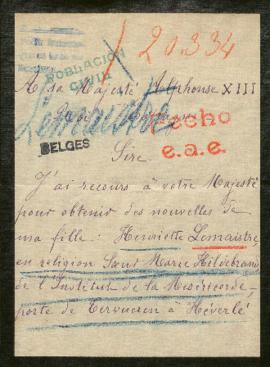 20.334
POBLACION
CIVIL
A sa Majesté Alphonse XIII
Lemaistre
Hecho
e.a.e.
BELGES
Sire
J'ai recours à votre Majesté
pour obtenir des nouvelles de
ma fille : Henriette Lemaistre,
en religion Sœur Marie Hildebrand
de l'Institut de la Miséricorde,
porte de Tervueren à Héverlé